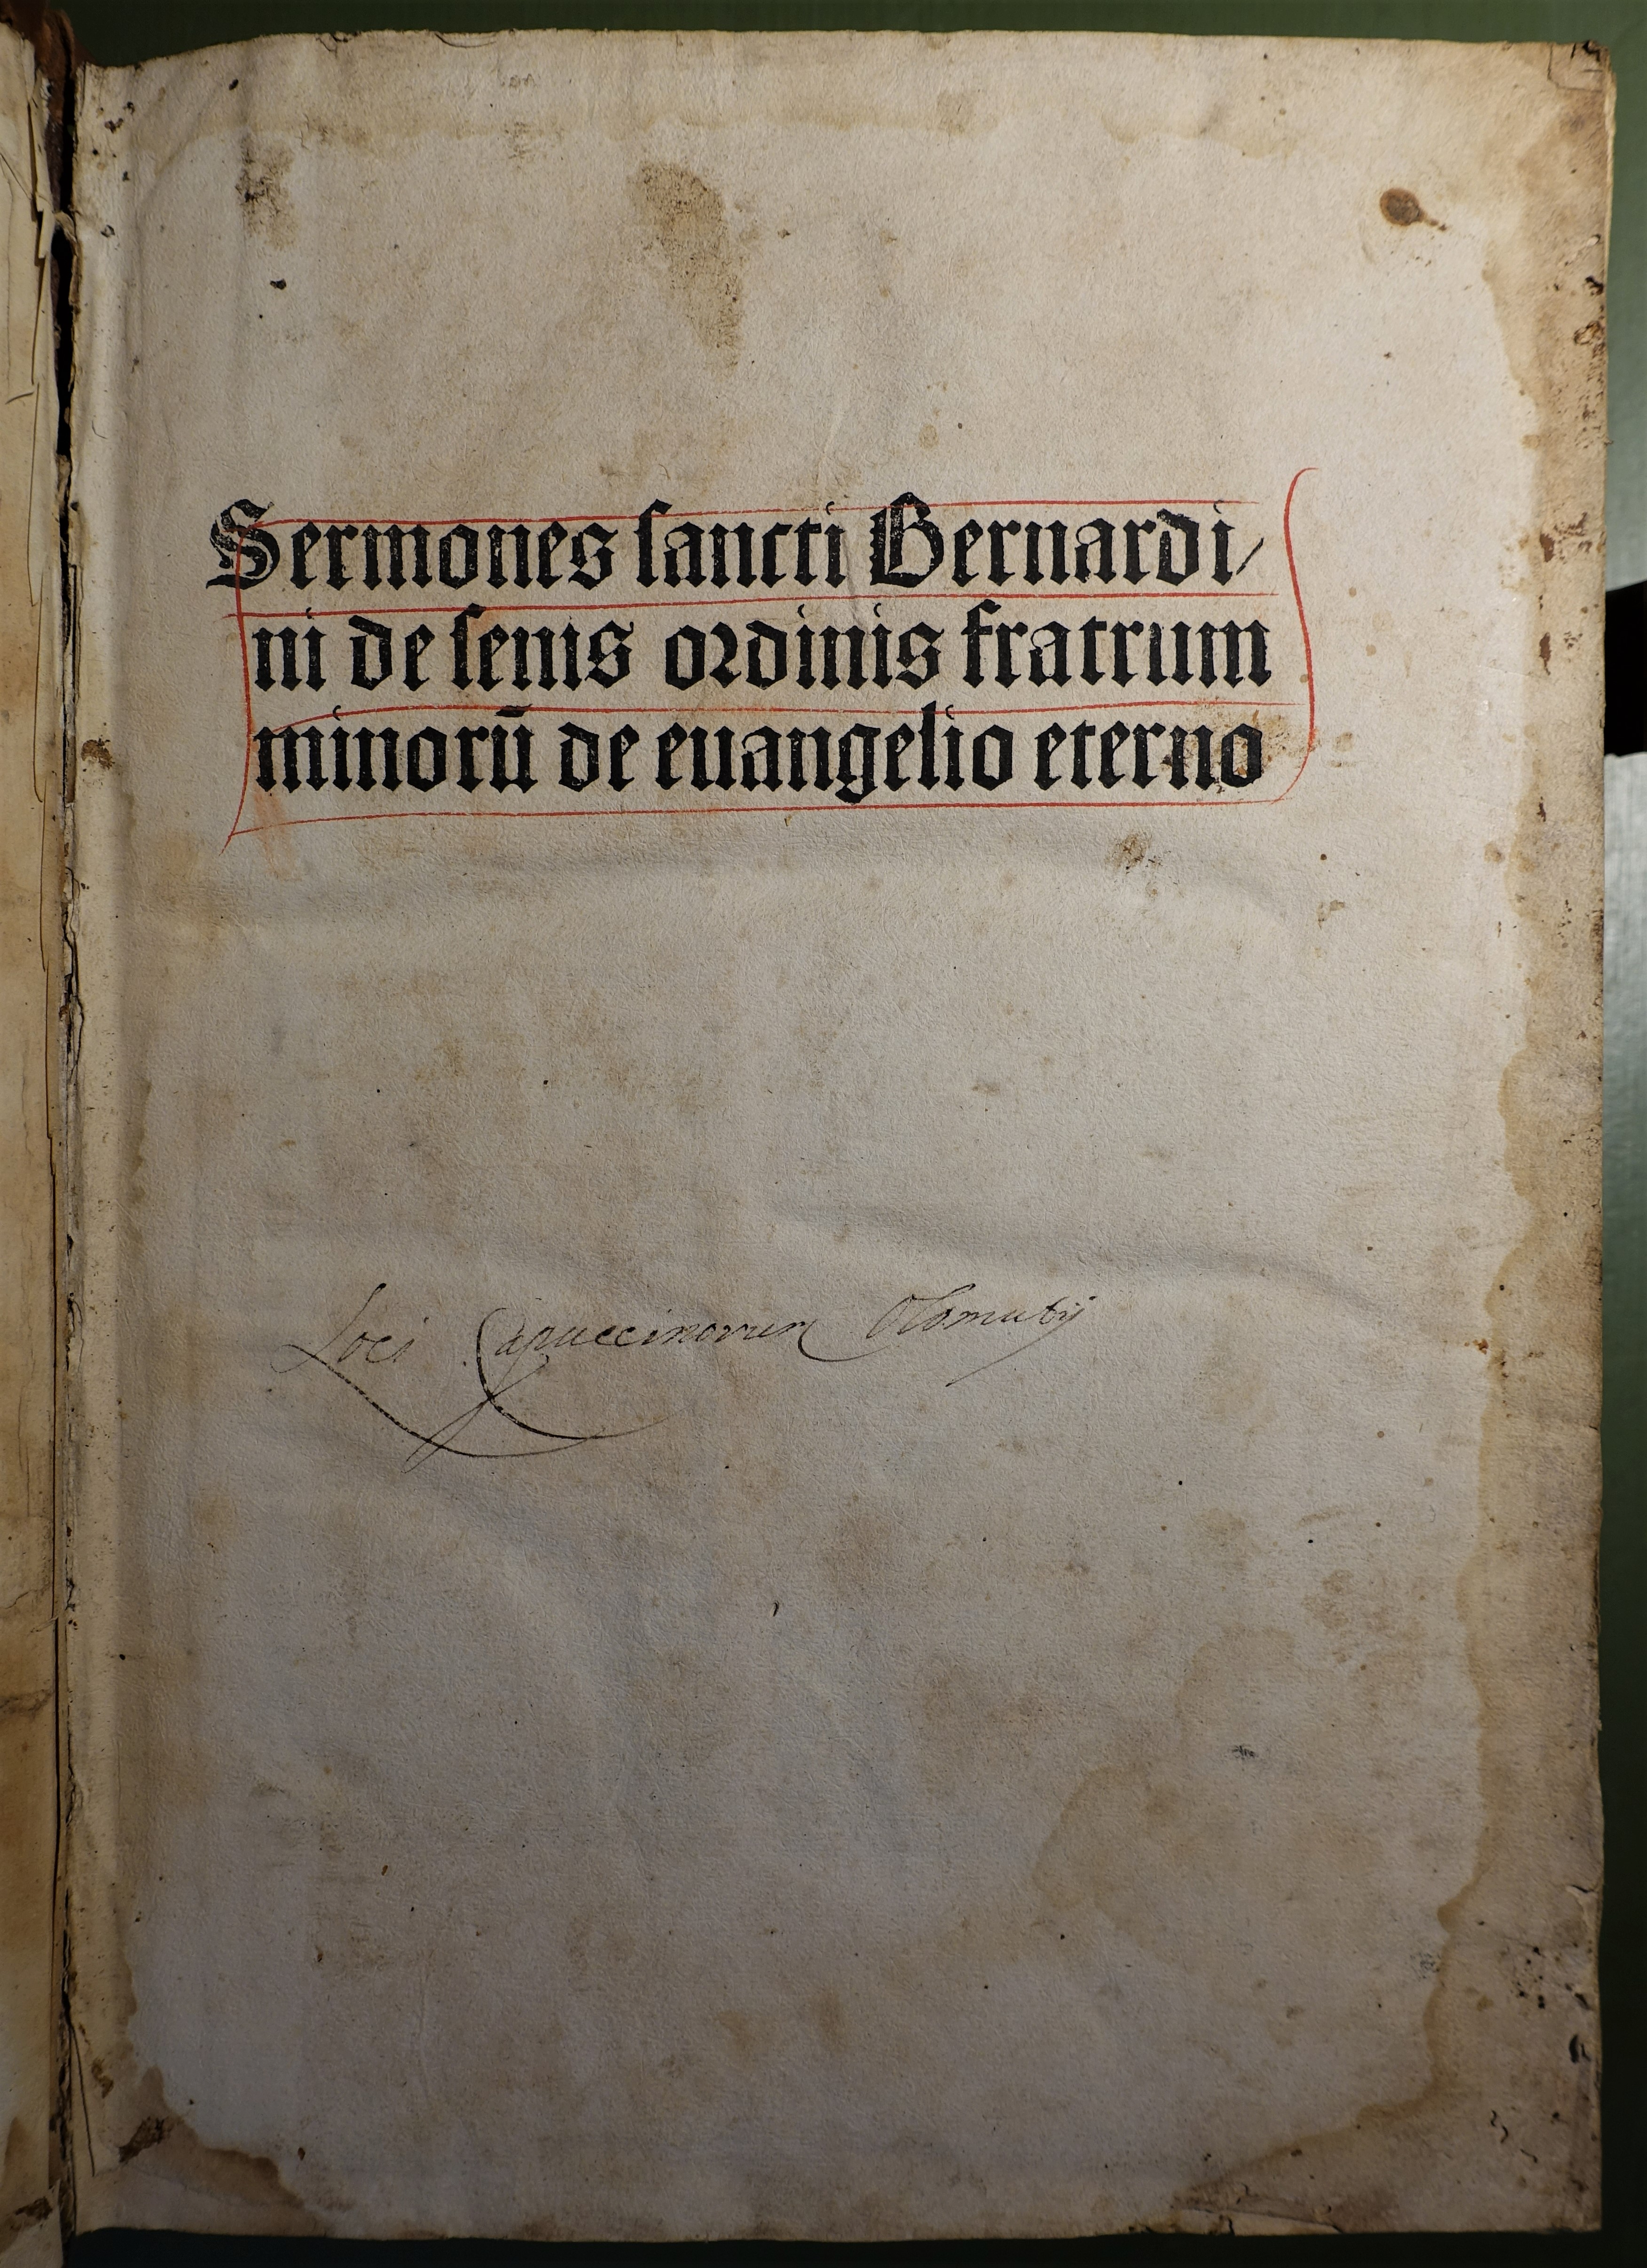 Sermones sancti Bernardi/
ni de senis ordinis fratrum
minorū de euangelio eterno
Loci Capuccinorum Olomutÿ